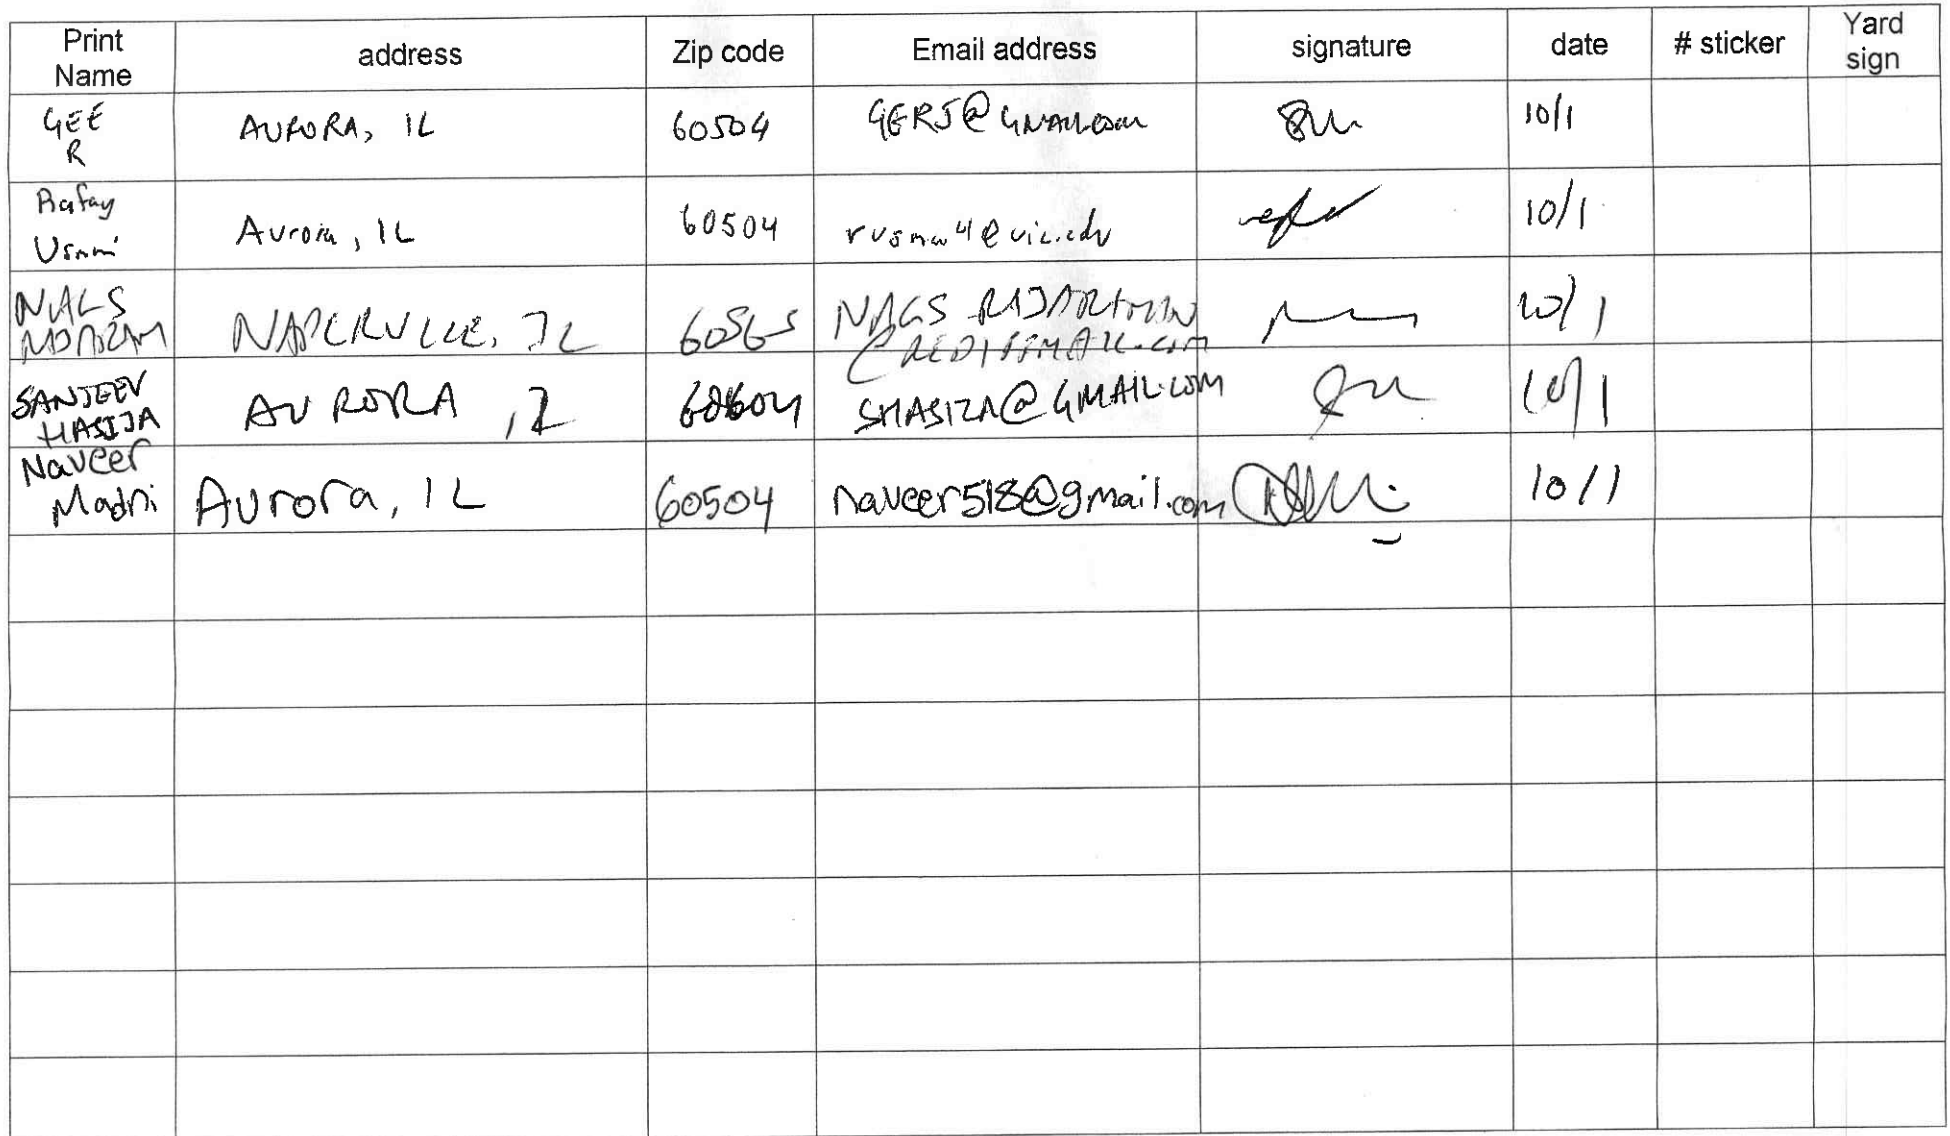 Print Name address Zip code Email address signature date # sticker Yard sign
GEE R AURORA, IL 60504 GERJ@GMAIL.COM 10/1
Rafay Aurora, IL 60504 10/1
NAGS NAPERVILLE, IL 60565 NAGS 10/1
@REDIFFMAIL.COM
SANJEEV HASIJA AURORA, IL SHASIZA@GMAIL.COM 10/1
Naveer Madni Aurora, IL 60504 naveer518@gmail.com 10/1